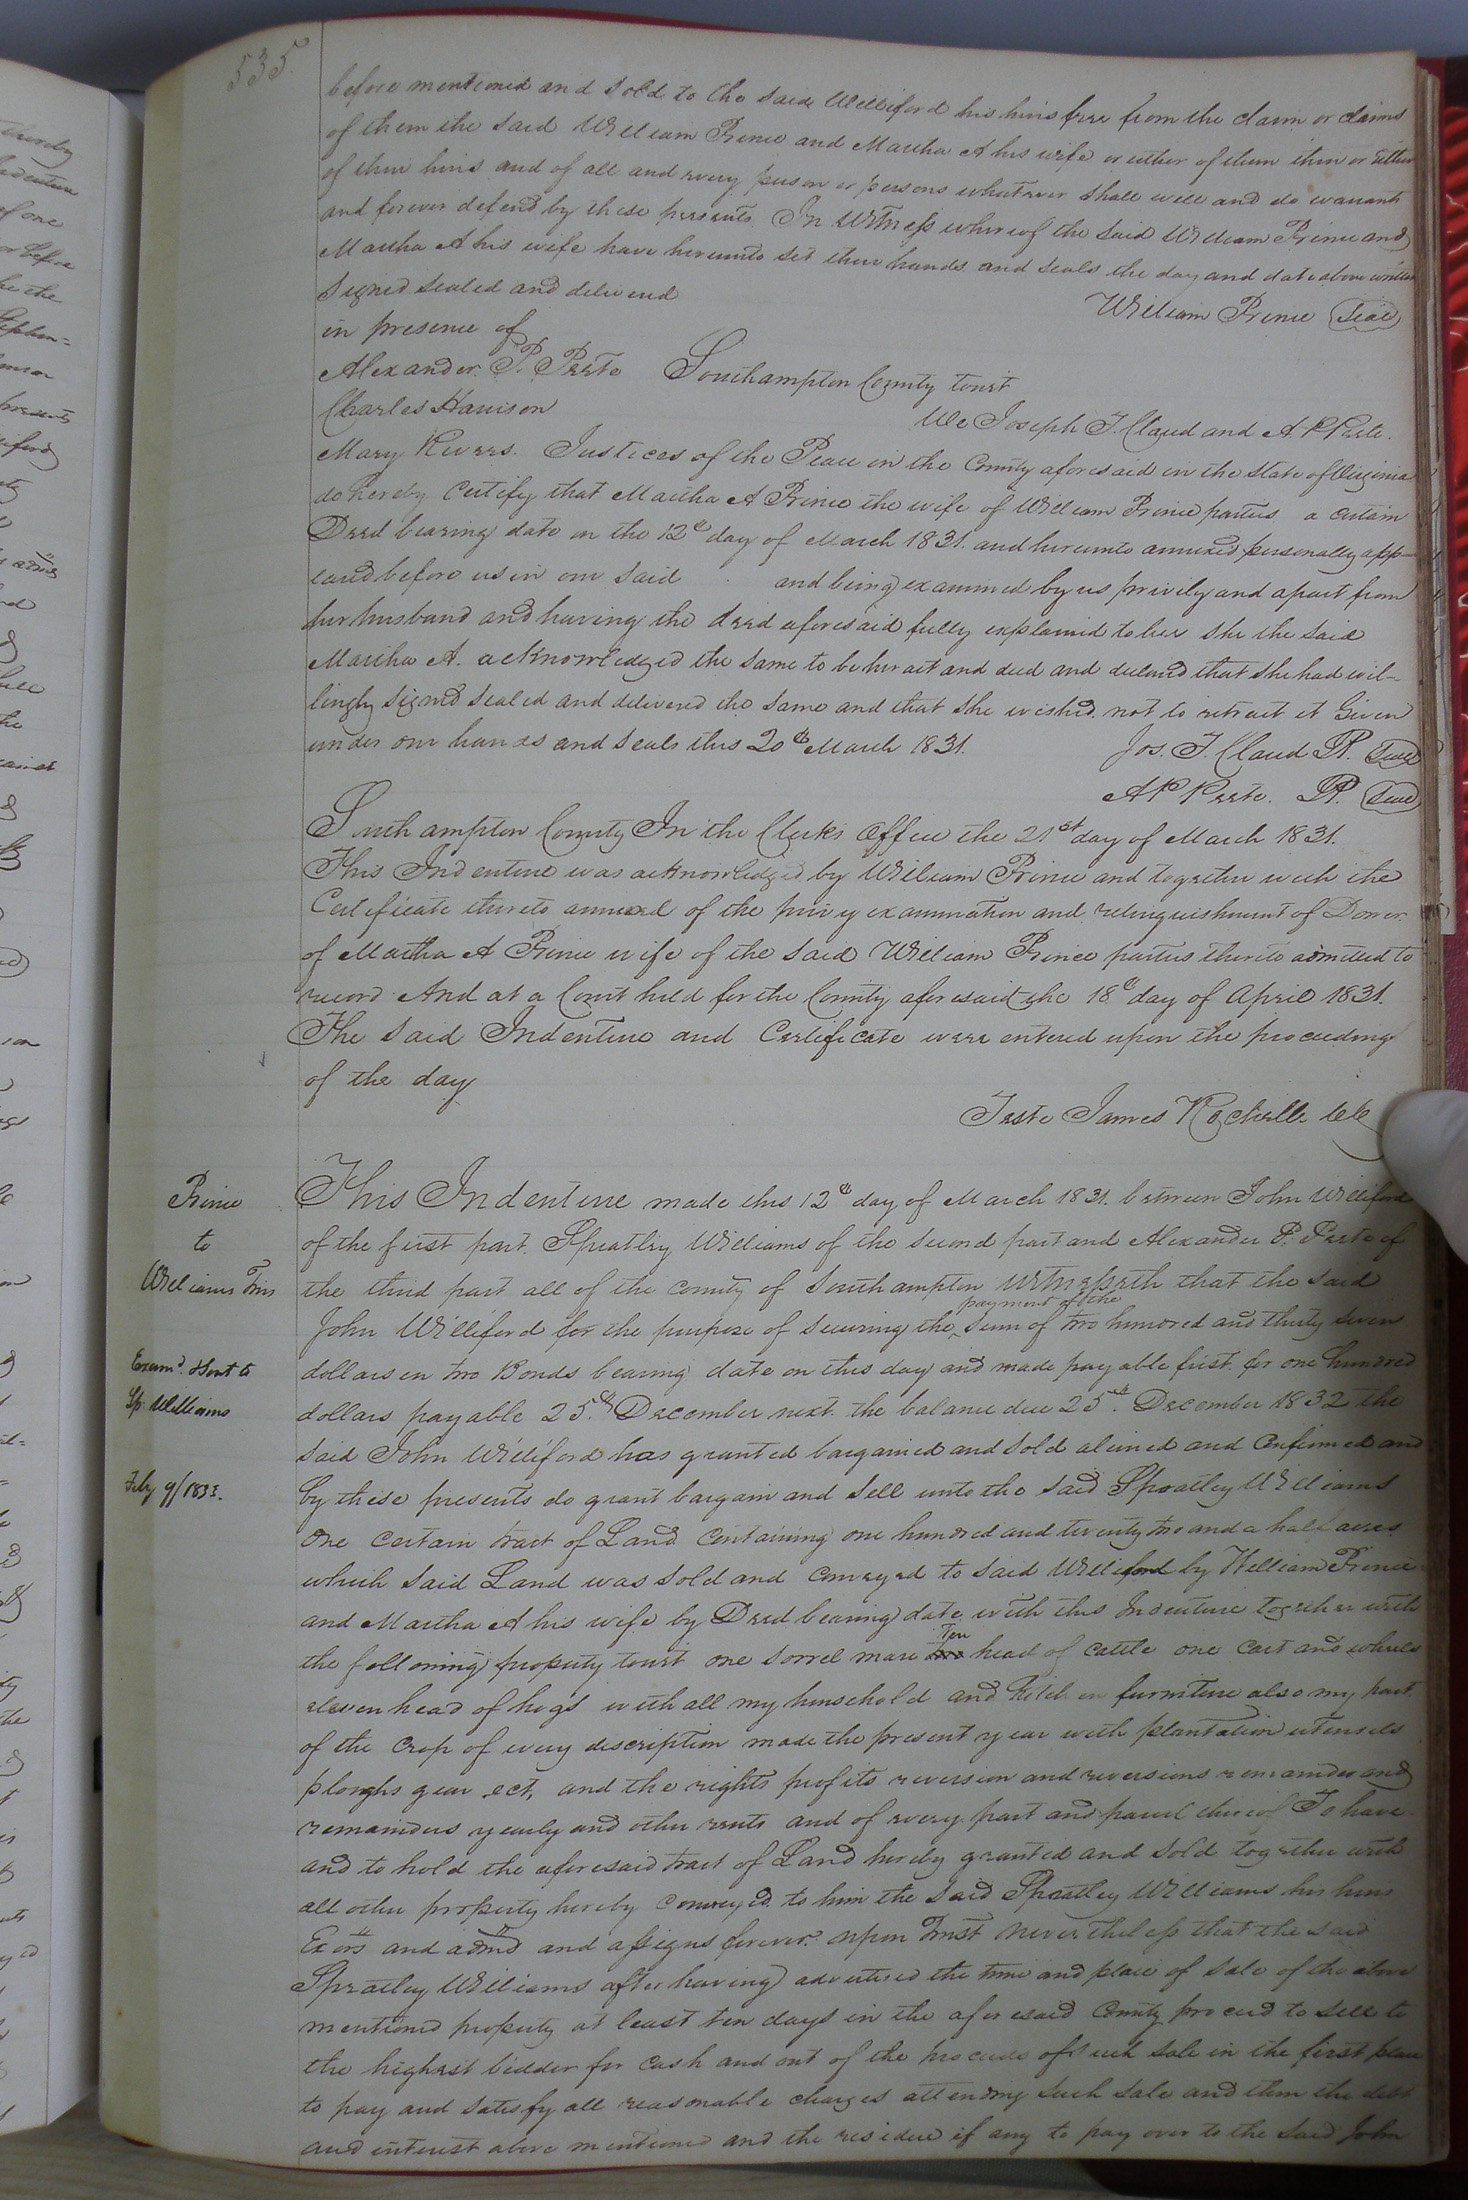 535.
before mentioned and sold to the said Williford his heirs free from the claim or claims
of them the said William Prince and Martha A his wife or either of them their or either
of their heirs and of all and every person or persons whatever shall will and do warrant
and forever defend by these presents In Witness whereof the said William Prince and
Martha A his wife have hereunto set their hands and seals the day and date above written
Signed sealed and delivered
William Prince Seal
in presence of
Alexander P. Peete
Southampton County towit
Charles Harrison
We Joseph T. Claud and A P Peete.
Mary Rivers.
Justices of the Peace in the County aforesaid in the state of Virginia
do hereby Certify that Martha A Prince the wife of William Prince parties a certain
Deed bearing date on the 12th day of March 1831. and hereunto annexed personally app-
eared before us in our said and being examined by us privily and apart from
her husband and having the deed aforesaid fully explained to her she the said
Martha A. acknowledged the same to be her act and deed and declared that she had wil-
lingly signed sealed and delivered the same and that she wished not to retract it Given
under our hands and seals this 20th March 1831.
Jos. T. Claud JP. Seal
A P Peete. JP. Seal
Southampton County In the Clerks Office the 21st day of March 1831.
This Indenture was acknowledged by William Prince and together with the
Certificate thereto annexed of the privy examination and relinquishment of Dower
of Martha A Prince wife of the said William Prince parties thereto admitted to
record And at a Court held for the County aforesaid the 18th day of April 1831.
The said Indenture and Certificate were entered upon the proceeding
of the day
Teste James Rochelle
Prince
to
Williams Trus
Examd. & Sent to
Sp. Williams
Feby 9/1833.
This Indenture made this 12th day of March 1831. between John Williford
of the first part. Spratley Williams of the second part and Alexander P. Peete of
the third part all of the county of Southampton Witnesseth that the said
payment of the
John Williford for the purpose of securing the sum of two hundred and thirty seven
dollars in two Bonds bearing date on this day and made payable first. for one hundred
dollars payable 25.th December next. the balance due 25th. December 1832 the
said John Williford has granted bargained and sold aliened and Confirmed and
by these presents do grant bargain and sell unto the said Spratley Williams
One certain tract of Land Containing one hundred and twenty two and a half acres
which said Land was sold and conveyed to said Williford by William Prince
and Martha A his wife by Deed bearing date with this Indenture together with
Ten
the following property towit one sorrel mare two head of cattle one cart and wheels
eleven head of hogs with all my household and kitchen furniture also my part
of the crop of every discription made the present year with plantation utensels
ploughs gear ect, and the rights profits reversion and reversions remainder and
remainders yearly and other rents and of every part and parcel thereof To have
and to hold the aforesaid tract of Land hereby granted and sold together with
all other property hereby conveyed to him the said Spratley Williams his heirs
Exors and admrs and assigns forever. upon Trust nevertheless that the said
Spratley Williams after having advertised the time and place of sale of the above
mentioned property at least ten days in the aforesaid County proceed to sell to
the highest bidder for cash and out of the proceeds of such sale in the first place
to pay and satisfy all reasonable charges attending such sale and then the debt
and interest above mentioned and the residue if any to pay over to the said John